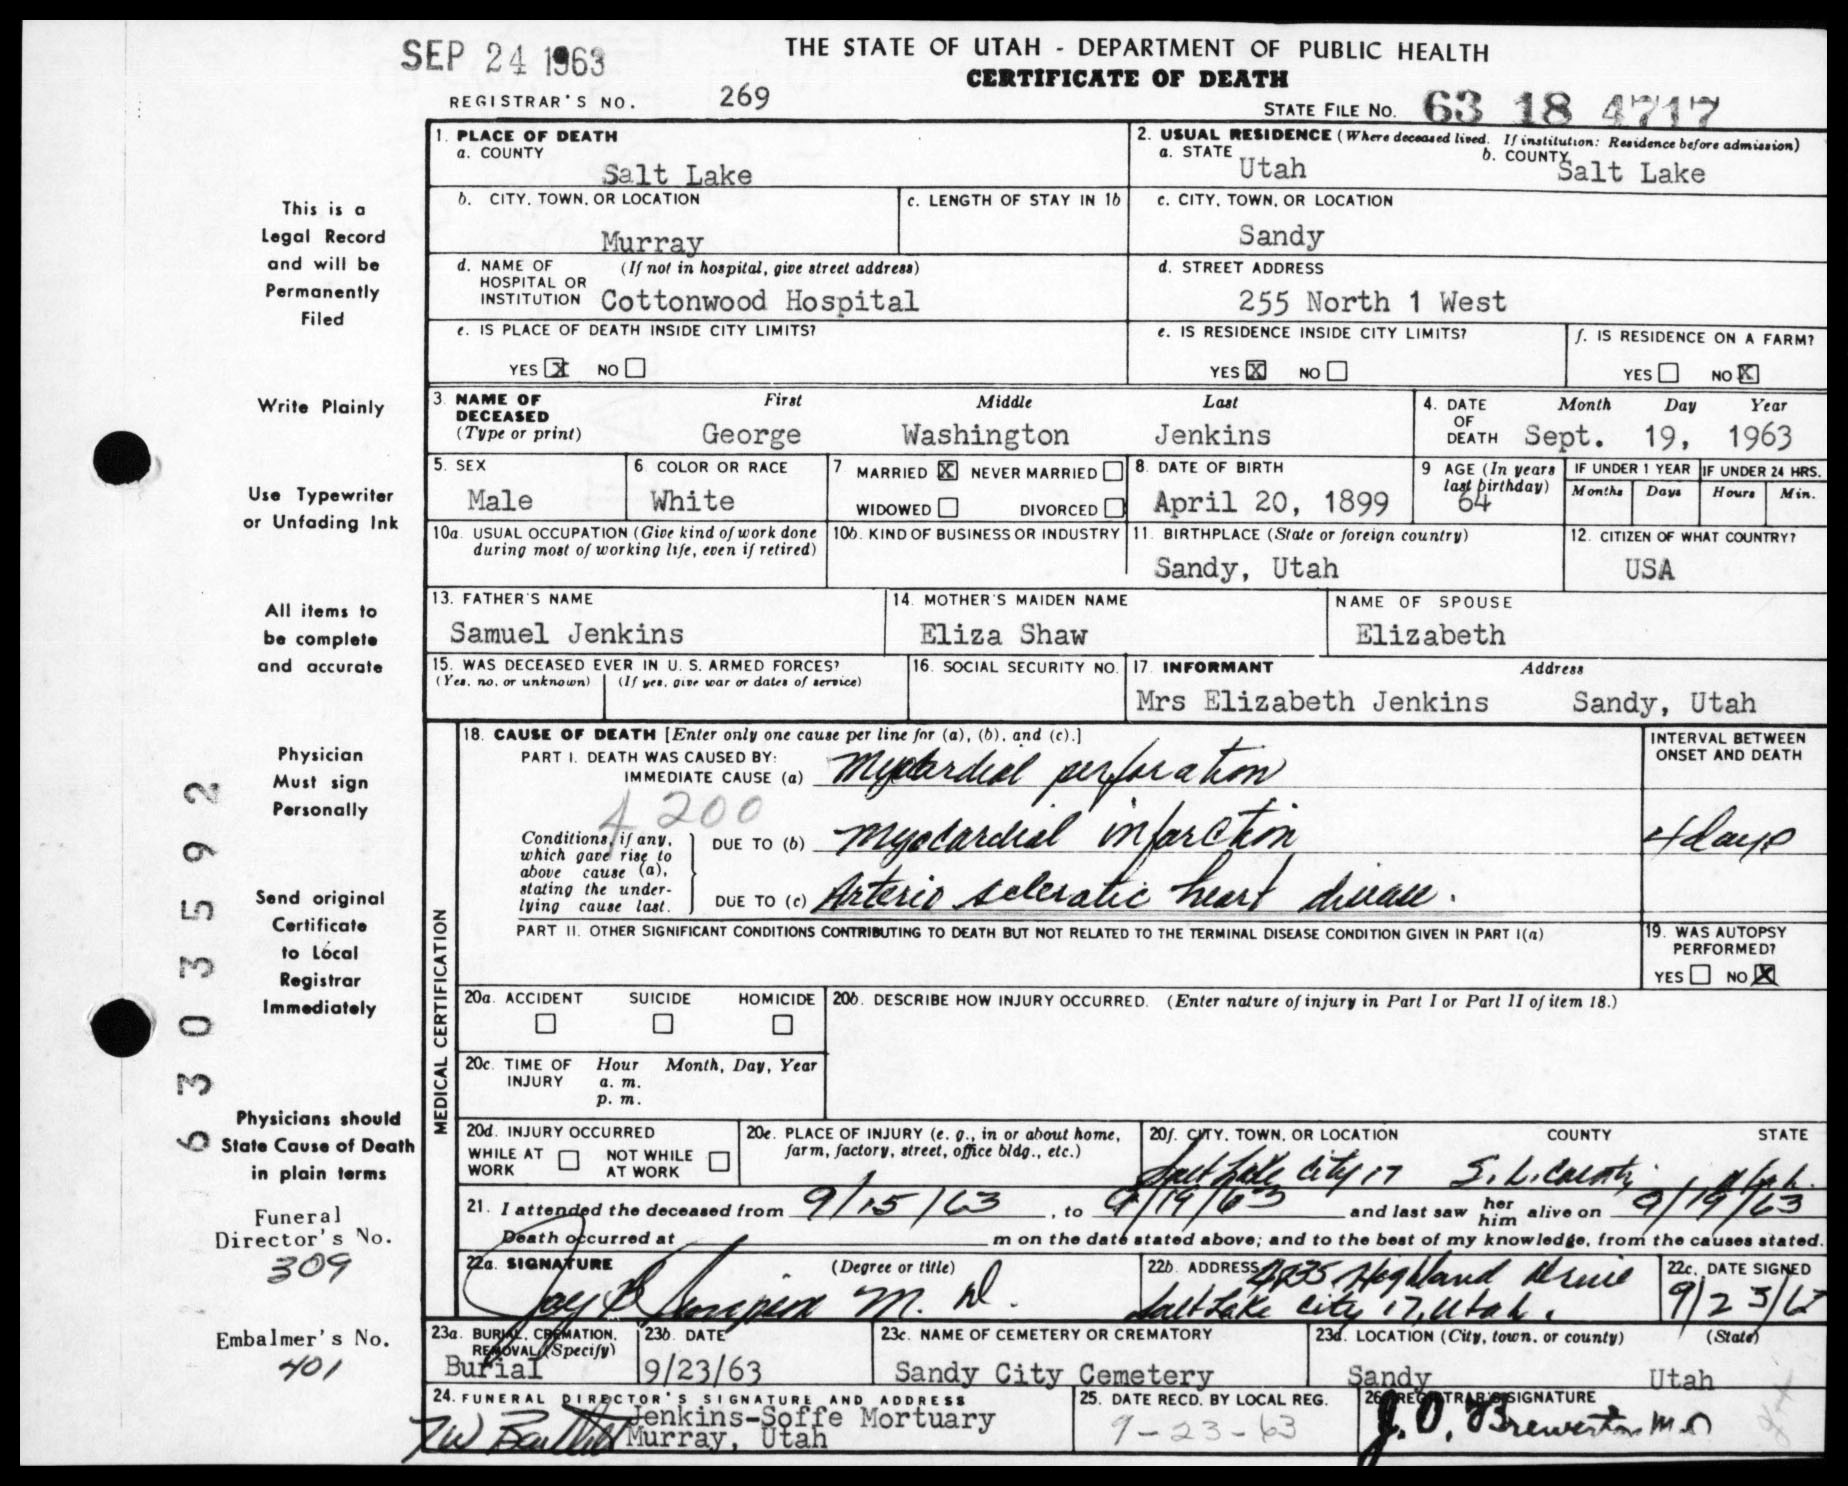 SEP 24 1963
THE STATE OF UTAH - DEPARTMENT OF PUBLIC HEALTH
CERTIFICATE OF DEATH
REGISTRAR'S NO. 269
STATE FILE NO. 63 18 4717
This is a
Legal Record
and will be
Permanently
Filed
Write Plainly
Use Typewriter
or Unfading Ink
All items to
be complete
and accurate
Physician
Must sign
Personally
Send original
Certificate
to Local
Registrar
Immediately
Physicians should
State Cause of Death
in plain terms
Funeral
Director's No.
309
Embalmer's No.
401
6303592
1. PLACE OF DEATH
a. COUNTY
Salt Lake
2. USUAL RESIDENCE (Where deceased lived. If institution: Residence before admission)
a. STATE Utah
b. COUNTY Salt Lake
b. CITY, TOWN, OR LOCATION
Murray
c. LENGTH OF STAY IN 1b
c. CITY, TOWN, OR LOCATION
Sandy
d. NAME OF HOSPITAL OR INSTITUTION (If not in hospital, give street address)
Cottonwood Hospital
d. STREET ADDRESS
255 North 1 West
e. IS PLACE OF DEATH INSIDE CITY LIMITS?
YES X NO
e. IS RESIDENCE INSIDE CITY LIMITS?
YES X NO
f. IS RESIDENCE ON A FARM?
YES NO X
3. NAME OF DECEASED (Type or print)
First Middle Last
George Washington Jenkins
4. DATE OF DEATH Month Day Year
Sept. 19, 1963
5. SEX
Male
6. COLOR OR RACE
White
7 MARRIED X NEVER MARRIED
WIDOWED DIVORCED
8. DATE OF BIRTH
April 20, 1899
9 AGE (In years last birthday)
64
IF UNDER 1 YEAR IF UNDER 24 HRS.
Months Days Hours Min.
10a. USUAL OCCUPATION (Give kind of work done during most of working life, even if retired)
10b. KIND OF BUSINESS OR INDUSTRY
11. BIRTHPLACE (State or foreign country)
Sandy, Utah
12. CITIZEN OF WHAT COUNTRY?
USA
13. FATHER'S NAME
Samuel Jenkins
14. MOTHER'S MAIDEN NAME
Eliza Shaw
NAME OF SPOUSE
Elizabeth
15. WAS DECEASED EVER IN U. S. ARMED FORCES?
(Yes, no, or unknown) (If yes, give war or dates of service)
16. SOCIAL SECURITY NO.
17. INFORMANT Address
Mrs Elizabeth Jenkins Sandy, Utah
MEDICAL CERTIFICATION
18. CAUSE OF DEATH [Enter only one cause per line for (a), (b), and (c).]
PART I. DEATH WAS CAUSED BY:
IMMEDIATE CAUSE (a) Myocardial perforation
4200
Conditions, if any, which gave rise to above cause (a), stating the underlying cause last.
DUE TO (b) Myocardial infarction
DUE TO (c) Arterio scleratic heart disease.
INTERVAL BETWEEN ONSET AND DEATH
4 days
PART II. OTHER SIGNIFICANT CONDITIONS CONTRIBUTING TO DEATH BUT NOT RELATED TO THE TERMINAL DISEASE CONDITION GIVEN IN PART I(a)
19. WAS AUTOPSY PERFORMED?
YES NO X
20a. ACCIDENT SUICIDE HOMICIDE
20b. DESCRIBE HOW INJURY OCCURRED. (Enter nature of injury in Part I or Part II of item 18.)
20c. TIME OF INJURY Hour Month, Day, Year
a. m.
p. m.
20d. INJURY OCCURRED
WHILE AT WORK NOT WHILE AT WORK
20e. PLACE OF INJURY (e. g., in or about home, farm, factory, street, office bldg., etc.)
20f. CITY, TOWN, OR LOCATION COUNTY STATE
Salt Lake City 17 S. L. County Utah.
21. I attended the deceased from 9/15/63, to 9/19/63 and last saw her him alive on 9/19/63
Death occurred at m on the date stated above; and to the best of my knowledge, from the causes stated.
22a. SIGNATURE (Degree or title)
Jay B M. D.
22b. ADDRESS 4735 Highland Drive
Salt Lake City 17, Utah.
22c. DATE SIGNED
9/23/63
23a. BURIAL, CREMATION, REMOVAL (Specify)
Burial
23b. DATE
9/23/63
23c. NAME OF CEMETERY OR CREMATORY
Sandy City Cemetery
23d. LOCATION (City, town, or county) (State)
Sandy Utah
24. FUNERAL DIRECTOR'S SIGNATURE AND ADDRESS
Jenkins-Soffe Mortuary
Murray, Utah
25. DATE RECD. BY LOCAL REG.
9-23-63
26. REGISTRAR'S SIGNATURE
J. O. Brewerton M.D